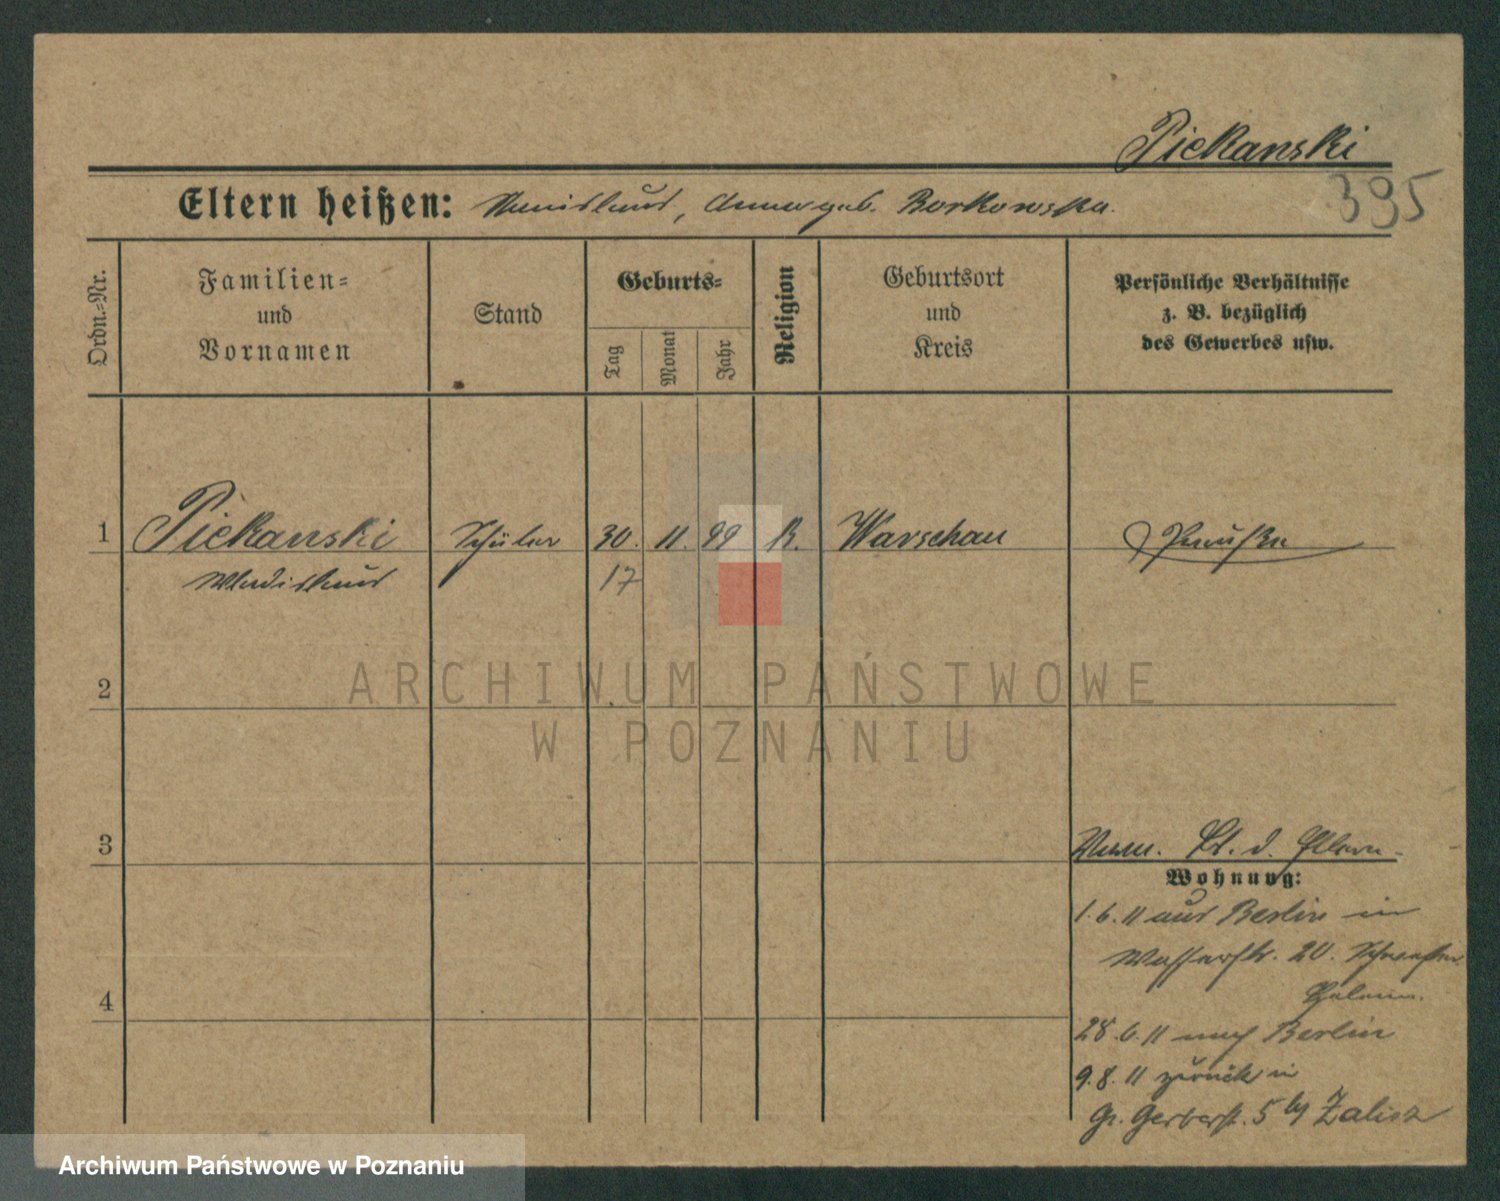 Piekanski
395
Eltern heißen: Stanislaus, Anna geb. Borkowska.
Ordn.-Nr.
Familien- und Vornamen
Stand
Geburts-
Tag
Monat
Jahr
Religion
Geburtsort und Kreis
Persönliche Verhältnisse
z. B. bezüglich
des Gewerbes usw.
1 Piekanski Schüler 30. 11. 99 K. Warschau Preuße
Wladislaus 17
2
ARCHIWUM PAŃSTWOWE
W POZNANIU
3
St. d. Eltern
Wohnung:
1.6.11 aus Berlin in
Wasserstr. 20.
4
28.6.11 nach Berlin
9.8.11 zurück in
Gr. Gerberstr. 5 by Zalisz
Archiwum Państwowe w Poznaniu